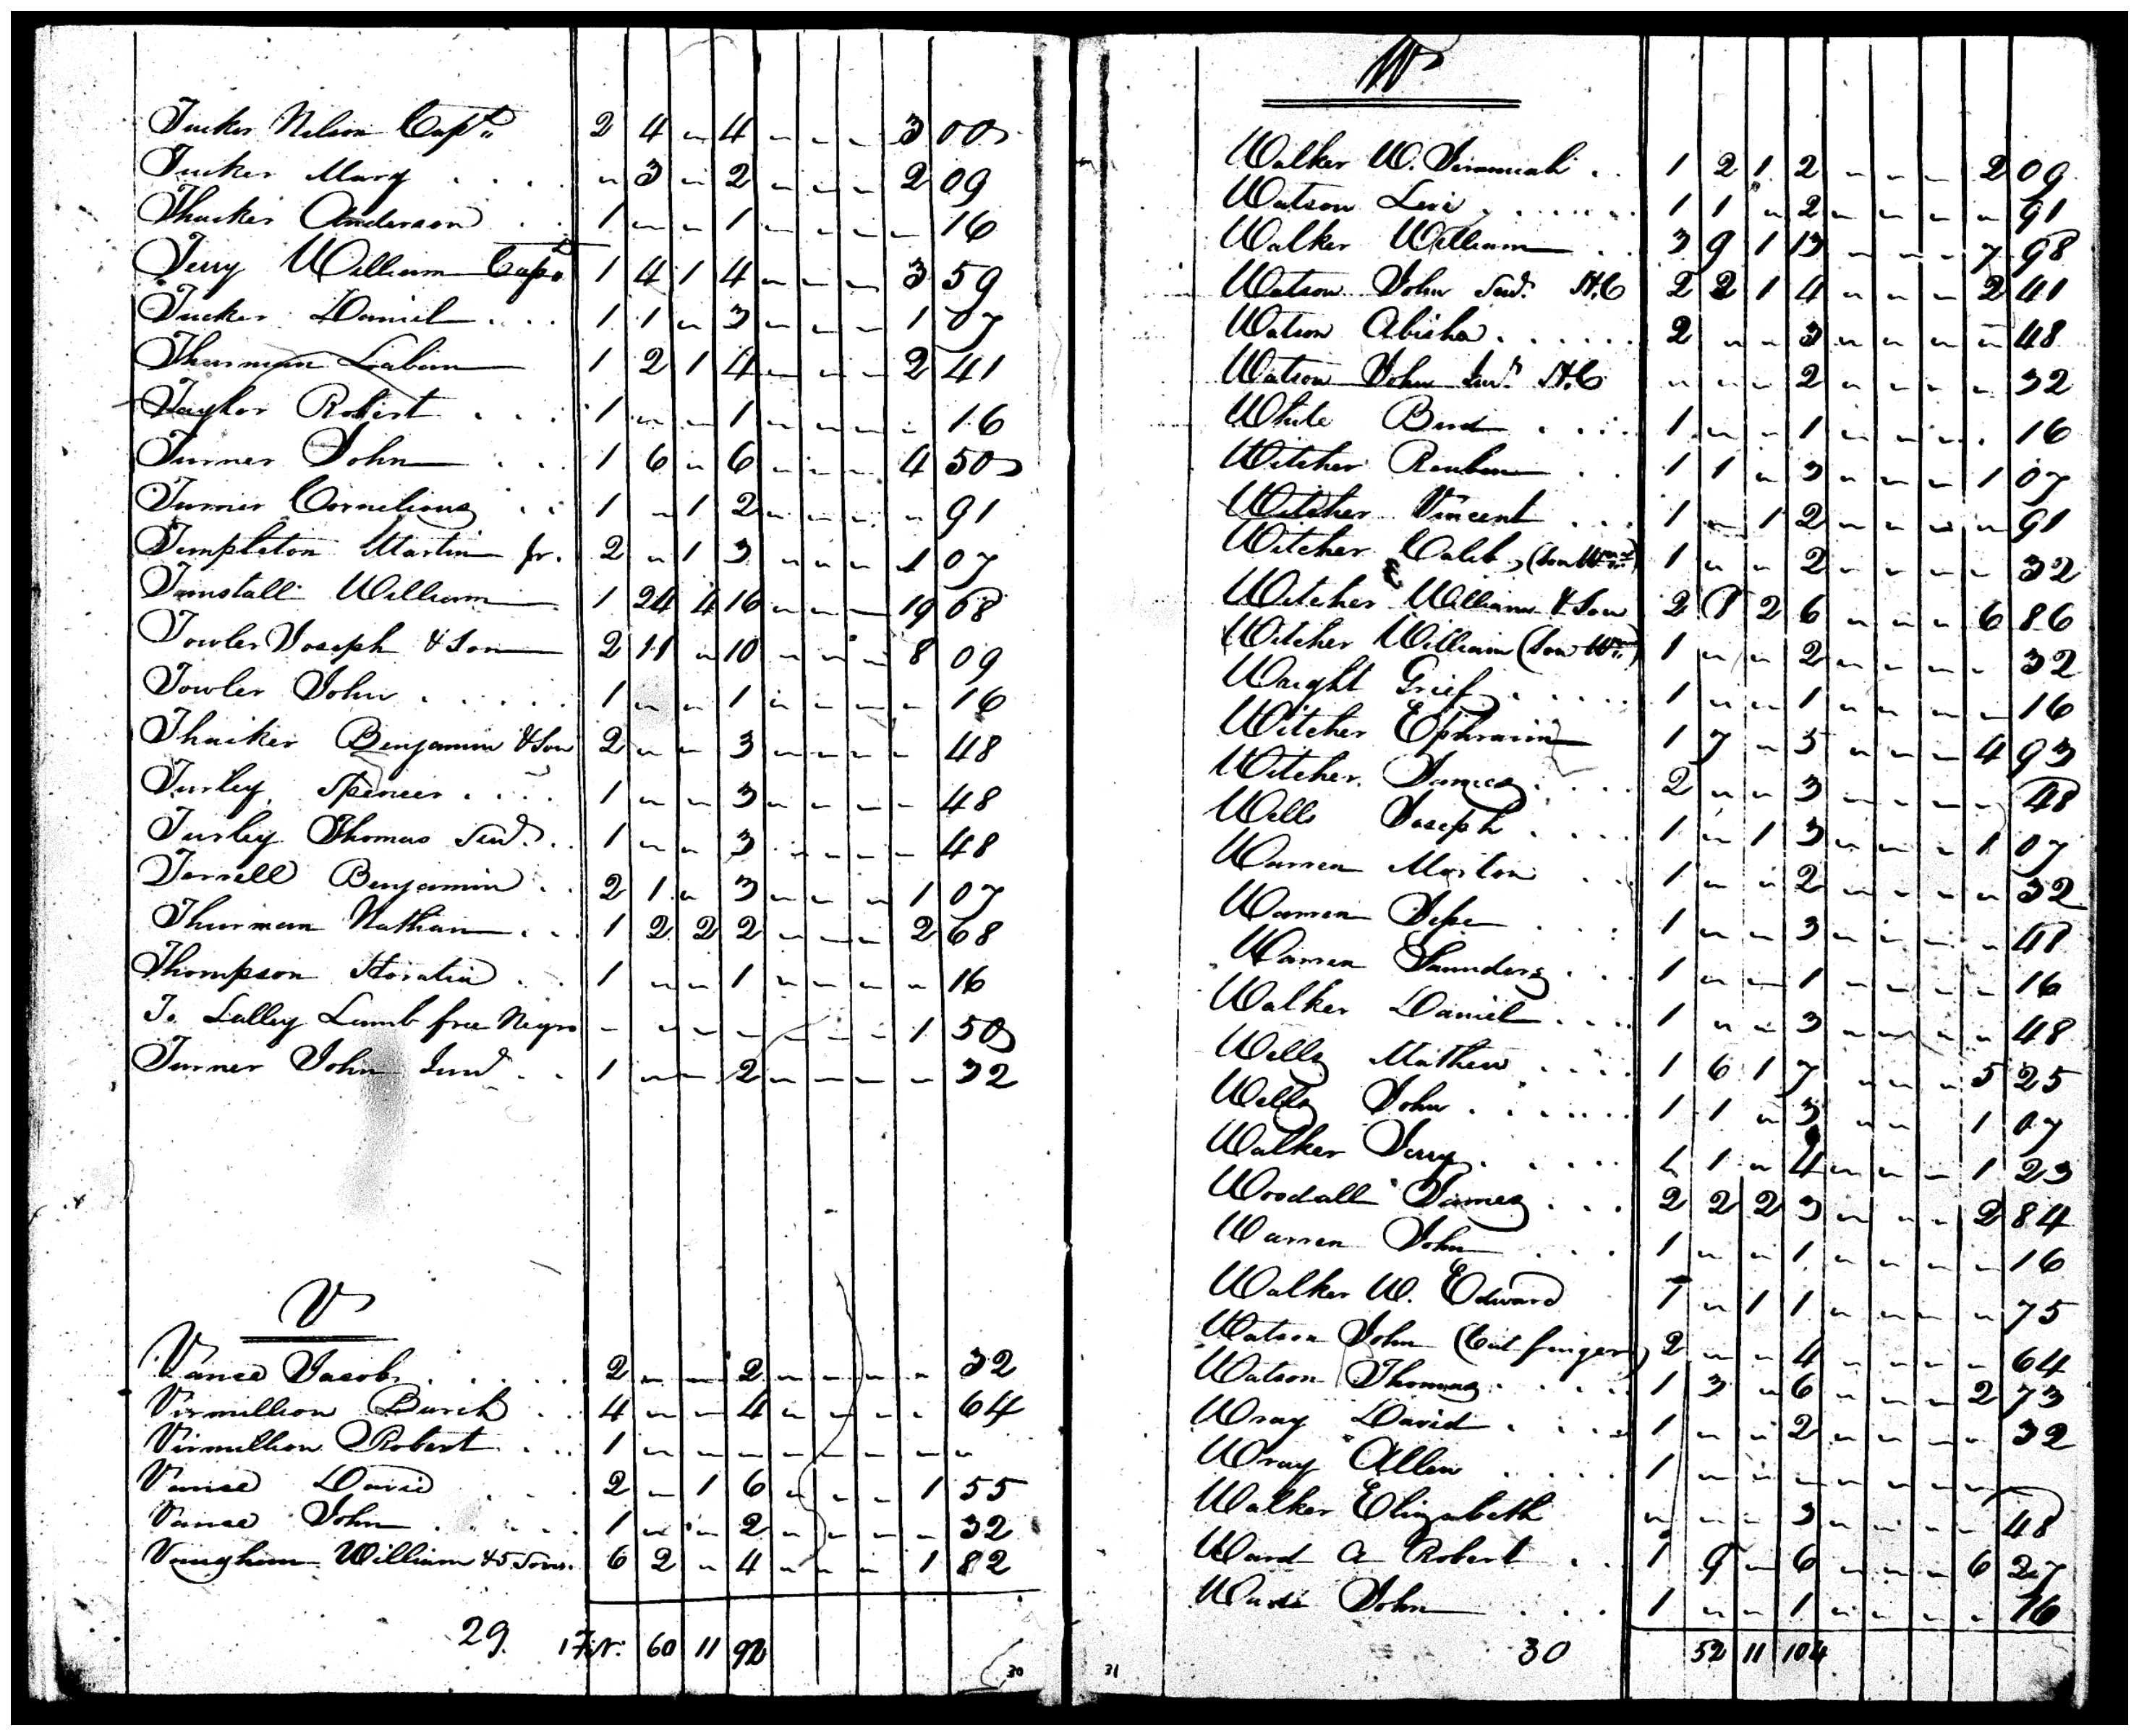 Tucker Nelson Capt. 2 4 " 4 " " " 3 00
Tucker Mary . . . . " 3 " 2 " " " 2 09
Thacker Anderson . . 1 " " 1 " " " " 16
Terry William Capt. 1 4 1 4 " " " 3 59
Tucker Daniel . . . 1 1 " 3 " " " 1 07
Thurman Laban 1 2 1 4 " " " 2 41
Taylor Robert . . . 1 " " 1 " " " " 16
Turner John . . 1 6 " 6 " " " 4 50
Turner Cornelious . . 1 " 1 2 " " " " 91
Templeton Martin Jr. 2 " 1 3 " " " 1 07
Tunstall William 1 24 4 16 " " " 19 68
Towler Joseph & Son 2 11 " 10 " " " 8 09
Towler John . . . . . 1 " " 1 " " " " 16
Thacker Benjamin & Son 2 " " 3 " " " " 48
Turley Spencer . . . . 1 " " 3 " " " " 48
Turley Thomas Senr. . 1 " " 3 " " " " 48
Terrell Benjamin . . 2 1 " 3 " " " 1 07
Thurman Nathan . . 1 2 2 2 " " " 2 68
Thompson Horatio . . 1 " " 1 " " " " 16
To. Lamb free Negro " " " " " " " 1 50
Turner John Junr . . 1 " " 2 " " " " 32
V
Vance Jacob . . . . . 2 " " 2 " " " " 32
Virmillion Burch . . 4 " " 4 " " " " 64
Virmillion Robert . . . 1 " " " " " " " "
Vance David . . . 2 " 1 6 " " " 1 55
Vance John . . . . . 1 " " 2 " " " " 32
Vaughan William & 5 Sons. 6 2 " 4 " " " 1 82
29. 60 11 92
30
W
Walker W. Jeremiah . . 1 2 1 2 " " " 2 09
Watson Levi . . . . . . 1 1 " 2 " " " " 91
Walker William . . 3 9 1 13 " " " 7 98
Watson John Senr. H.C 2 2 1 4 " " " 2 41
Watson Abisha . . . . . . 2 " " 3 " " " " 48
Watson John Junr. H.C " " " 2 " " " " 32
White . . . . 1 " " 1 " " " " 16
Witcher Reuben . . 1 1 " 3 " " " 1 07
Witcher Vincent . . . 1 " 1 2 " " " " 91
Witcher Caleb, (son Wm.) 1 " " 2 " " " " 32
Witcher William & Son 2 8 2 6 " " " 6 86
Witcher William (son Wm.) 1 " " 2 " " " " 32
Waight Grief . . . . . 1 " " 1 " " " " 16
Witcher Ephraim 1 7 " 5 " " " 4 93
Witcher James . . . . 2 " " 3 " " " " 48
Wells Joseph . . . . 1 " 1 3 " " " 1 07
Warren . . 1 " " 2 " " " " 32
Warren . . . 1 " " 3 " " " " 48
Warren Saunders . . . 1 " " 1 " " " " 16
Walker Daniel . . . . 1 " " 3 " " " " 48
Wells Mathew . . . . 1 6 1 7 " " " 5 25
Wells John . . . . . . 1 1 " 3 " " 1 07
Walker Jerry . . . . . 1 " 4 " " " 1 23
Woodall James . . . 2 2 2 3 " " " 2 84
Warren John . . . 1 " " 1 " " " " 16
Walker W. Edward 1 " 1 1 " " " " 75
Watson John (Cut finger) 2 " " 4 " " " " 64
Watson Thomas . . . . . 1 3 " 6 " " " 2 73
Wray David . . . . 1 " " 2 " " " " 32
Wray Allen . . . . 1 " " " " " " "
Walker Elizabeth " " " 3 " " " " 48
Ward A Robert . . 1 9 " 6 " " " 6 27
John . . . 1 " " 1 " " " " 16
30 52 11 104
31